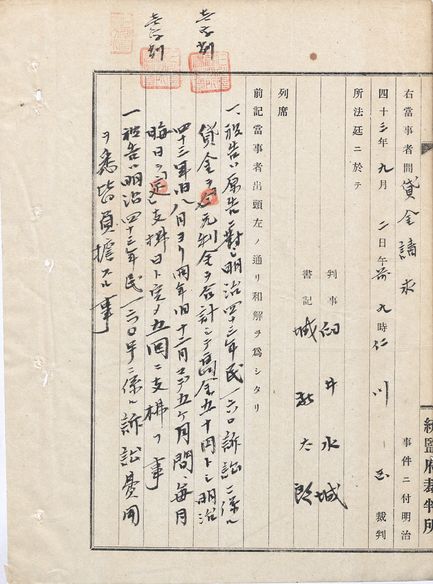 右當事者間貸金請求事件ニ付明治
四十三年九月二日午前九時仁川區裁判
所法廷ニ於テ
判事 臼井水城
書記 城 太郎
列席
前記當事者出頭左ノ通リ和解ヲ爲シタリ
一、被告ハ原告ニ對シ明治四十三年民一六〇訴訟ニ係ル
貸金ヲ元利金ヲ合計シテ金五十円トシ明治
四十三年旧八月ヨリ同年旧十二月マデ五ヶ月間、毎月
晦日ヲ支拂日ト定メ五回ニ支拂フ事
一被告ハ明治四十三年民一六〇号ニ係ル訴訟費用
ヲ悉皆負擔スル事
統監府裁判所